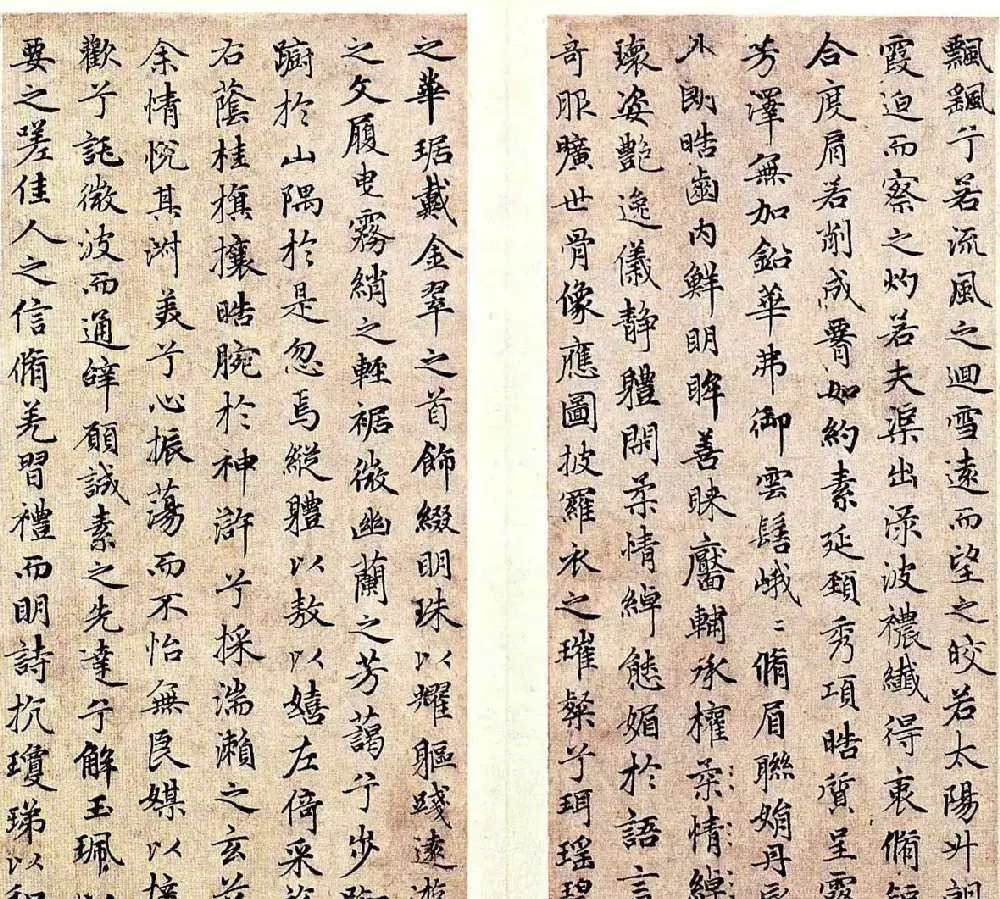 飄飖兮若流風之迴雪遠而望之皎若太陽升朝
霞迫而察之灼若夫渠出淥波襛纖得衷脩短
合度肩若削成如約素延頸秀項皓質呈露
芳澤無加鉛華弗御雲髻峨〻脩眉聯娟丹唇
外朗皓齒內鮮明眸善睞靨輔承權柔情綽
瓌姿艷逸儀靜體閑柔情綽態媚於語言
奇服曠世骨像應圖披羅衣之璀粲兮珥瑤碧
之華琚戴金翠之首飾綴明珠以耀軀踐遠遊
之文履曳霧綃之輕裾微幽蘭之芳藹兮步踟
躕於山隅於是忽焉縱體以敖以嬉左倚采旄
右蔭桂旗攘皓腕於神滸兮採湍瀨之玄芝
余情悅其淑美兮心振蕩而不怡無良媒以接
歡兮託微波而通辭願誠素之先達兮解玉珮以
要之嗟佳人之信脩羌習禮而明詩抗瓊珶以和